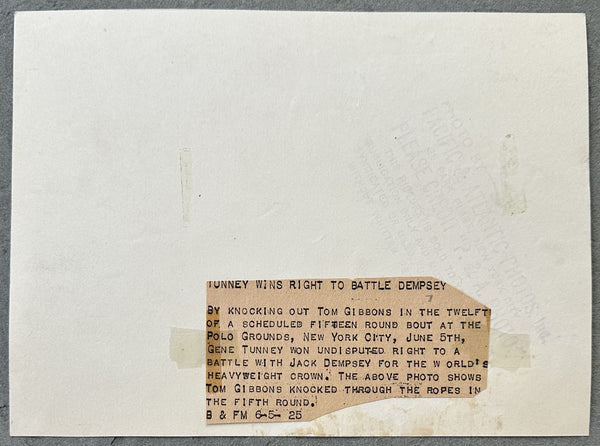 PHOTO BY
PACIFIC & ATLANTIC PHOTOS INC.
PLEASE CREDIT
TUNNEY WINS RIGHT TO BATTLE DEMPSEY
BY KNOCKING OUT TOM GIBBONS IN THE TWELFT
OF A SCHEDULED FIFTEEN ROUND BOUT AT THE
POLO GROUNDS, NEW YORK CITY, JUNE 5TH,
GENE TUNNEY WON UNDISPUTED RIGHT TO A
BATTLE WITH JACK DEMPSEY FOR THE WORLD'S
HEAVYWEIGHT CROWN. THE ABOVE PHOTO SHOWS
TOM GIBBONS KNOCKED THROUGH THE ROPES IN
THE FIFTH ROUND.
B & FM 6-5- 25